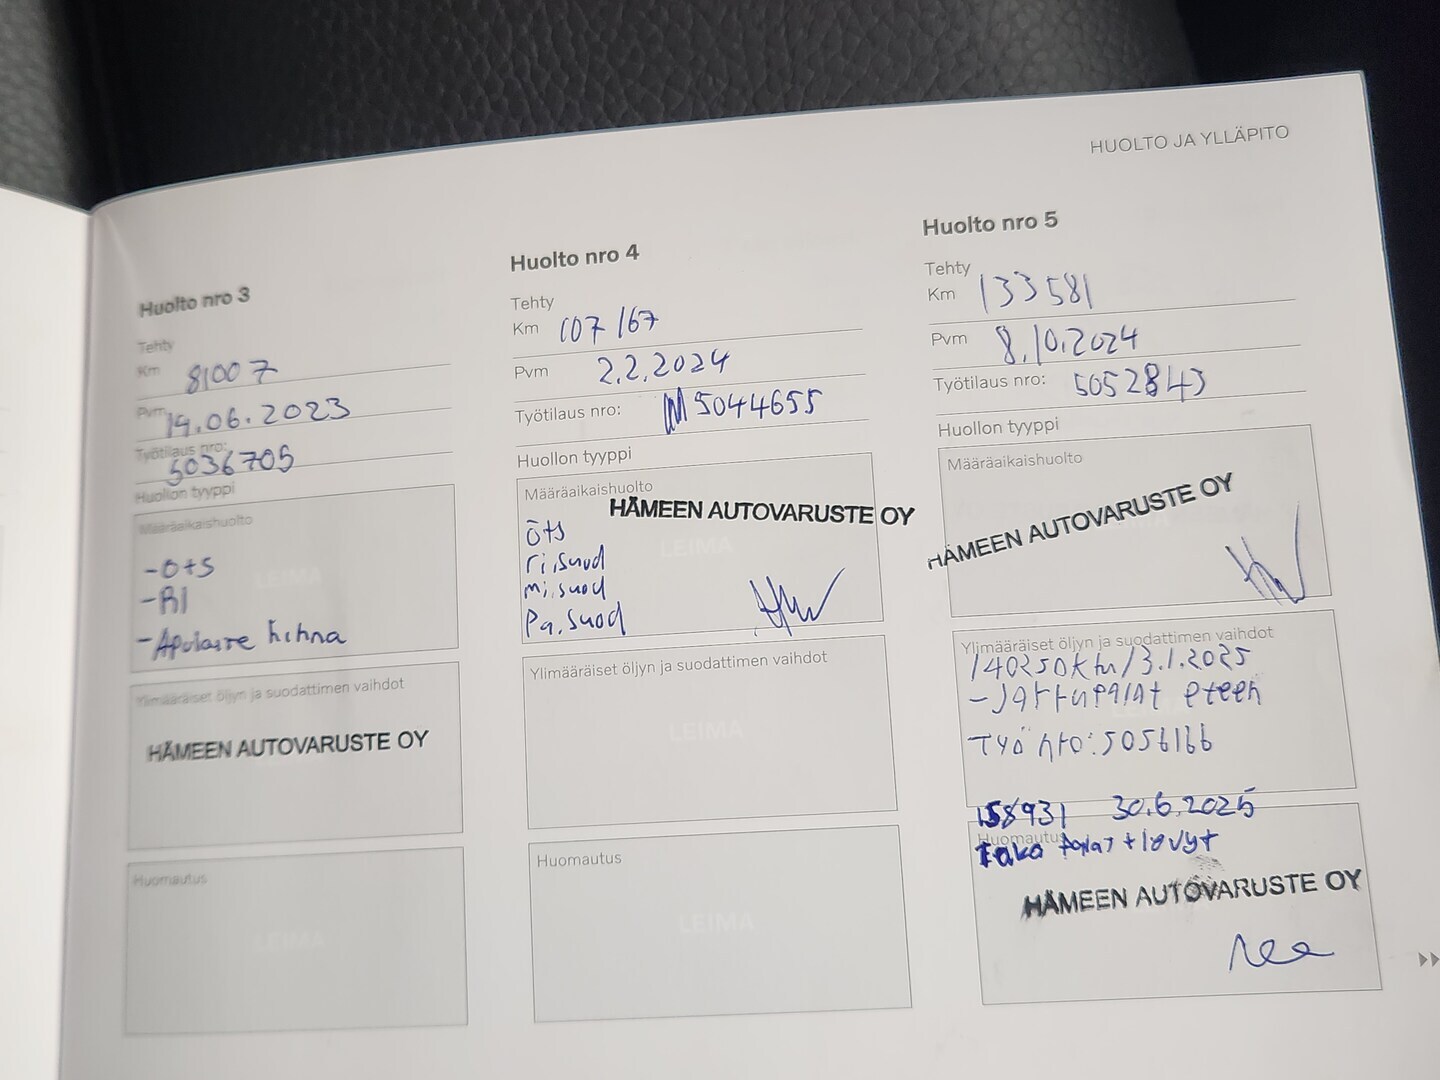 HUOLTO JA YLLÄPITO
Huolto nro 3
Tehty
Km 81007
Pvm 19.06.2023
Työtilaus nro: 5036705
Huollon tyyppi
Määräaikaishuolto
-öts
-RI
-Apulaite hihna
LEIMA
Ylimääräiset öljyn ja suodattimen vaihdot
HÄMEEN AUTOVARUSTE OY
Huomautus
LEIMA
Huolto nro 4
Tehty
Km 107167
Pvm 2.2.2024
Työtilaus nro: 5044655
Huollon tyyppi
Määräaikaishuolto
HÄMEEN AUTOVARUSTE OY
öts
ri.suod
mi.suod
Pa.suod
LEIMA
Ylimääräiset öljyn ja suodattimen vaihdot
LEIMA
Huomautus
LEIMA
Huolto nro 5
Tehty
Km 133581
Pvm 8.10.2024
Työtilaus nro: 5052843
Huollon tyyppi
Määräaikaishuolto
HÄMEEN AUTOVARUSTE OY
Ylimääräiset öljyn ja suodattimen vaihdot
140250km/3.1.2025
-Jarrupalat eteen
Työ nro: 5056166
158931 30.6.2025
Huomautus
Taka palat + levyt
HÄMEEN AUTOVARUSTE OY